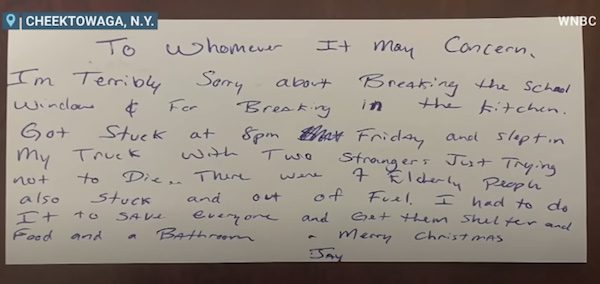 CHEEKTOWAGA, N.Y.
WNBC
To Whomever It May Concern,
I'm Terribly Sorry about Breaking the school
Window & For Breaking in the Kitchen.
Got Stuck at 8pm Friday and slept in
My Truck with Two Strangers Just Trying
not to Die.. There were 7 Elderly People
also Stuck and out of Fuel. I had to do
It to SAve everyone and Get them Shelter and
Food and a Bathroom - Merry Christmas
Jay